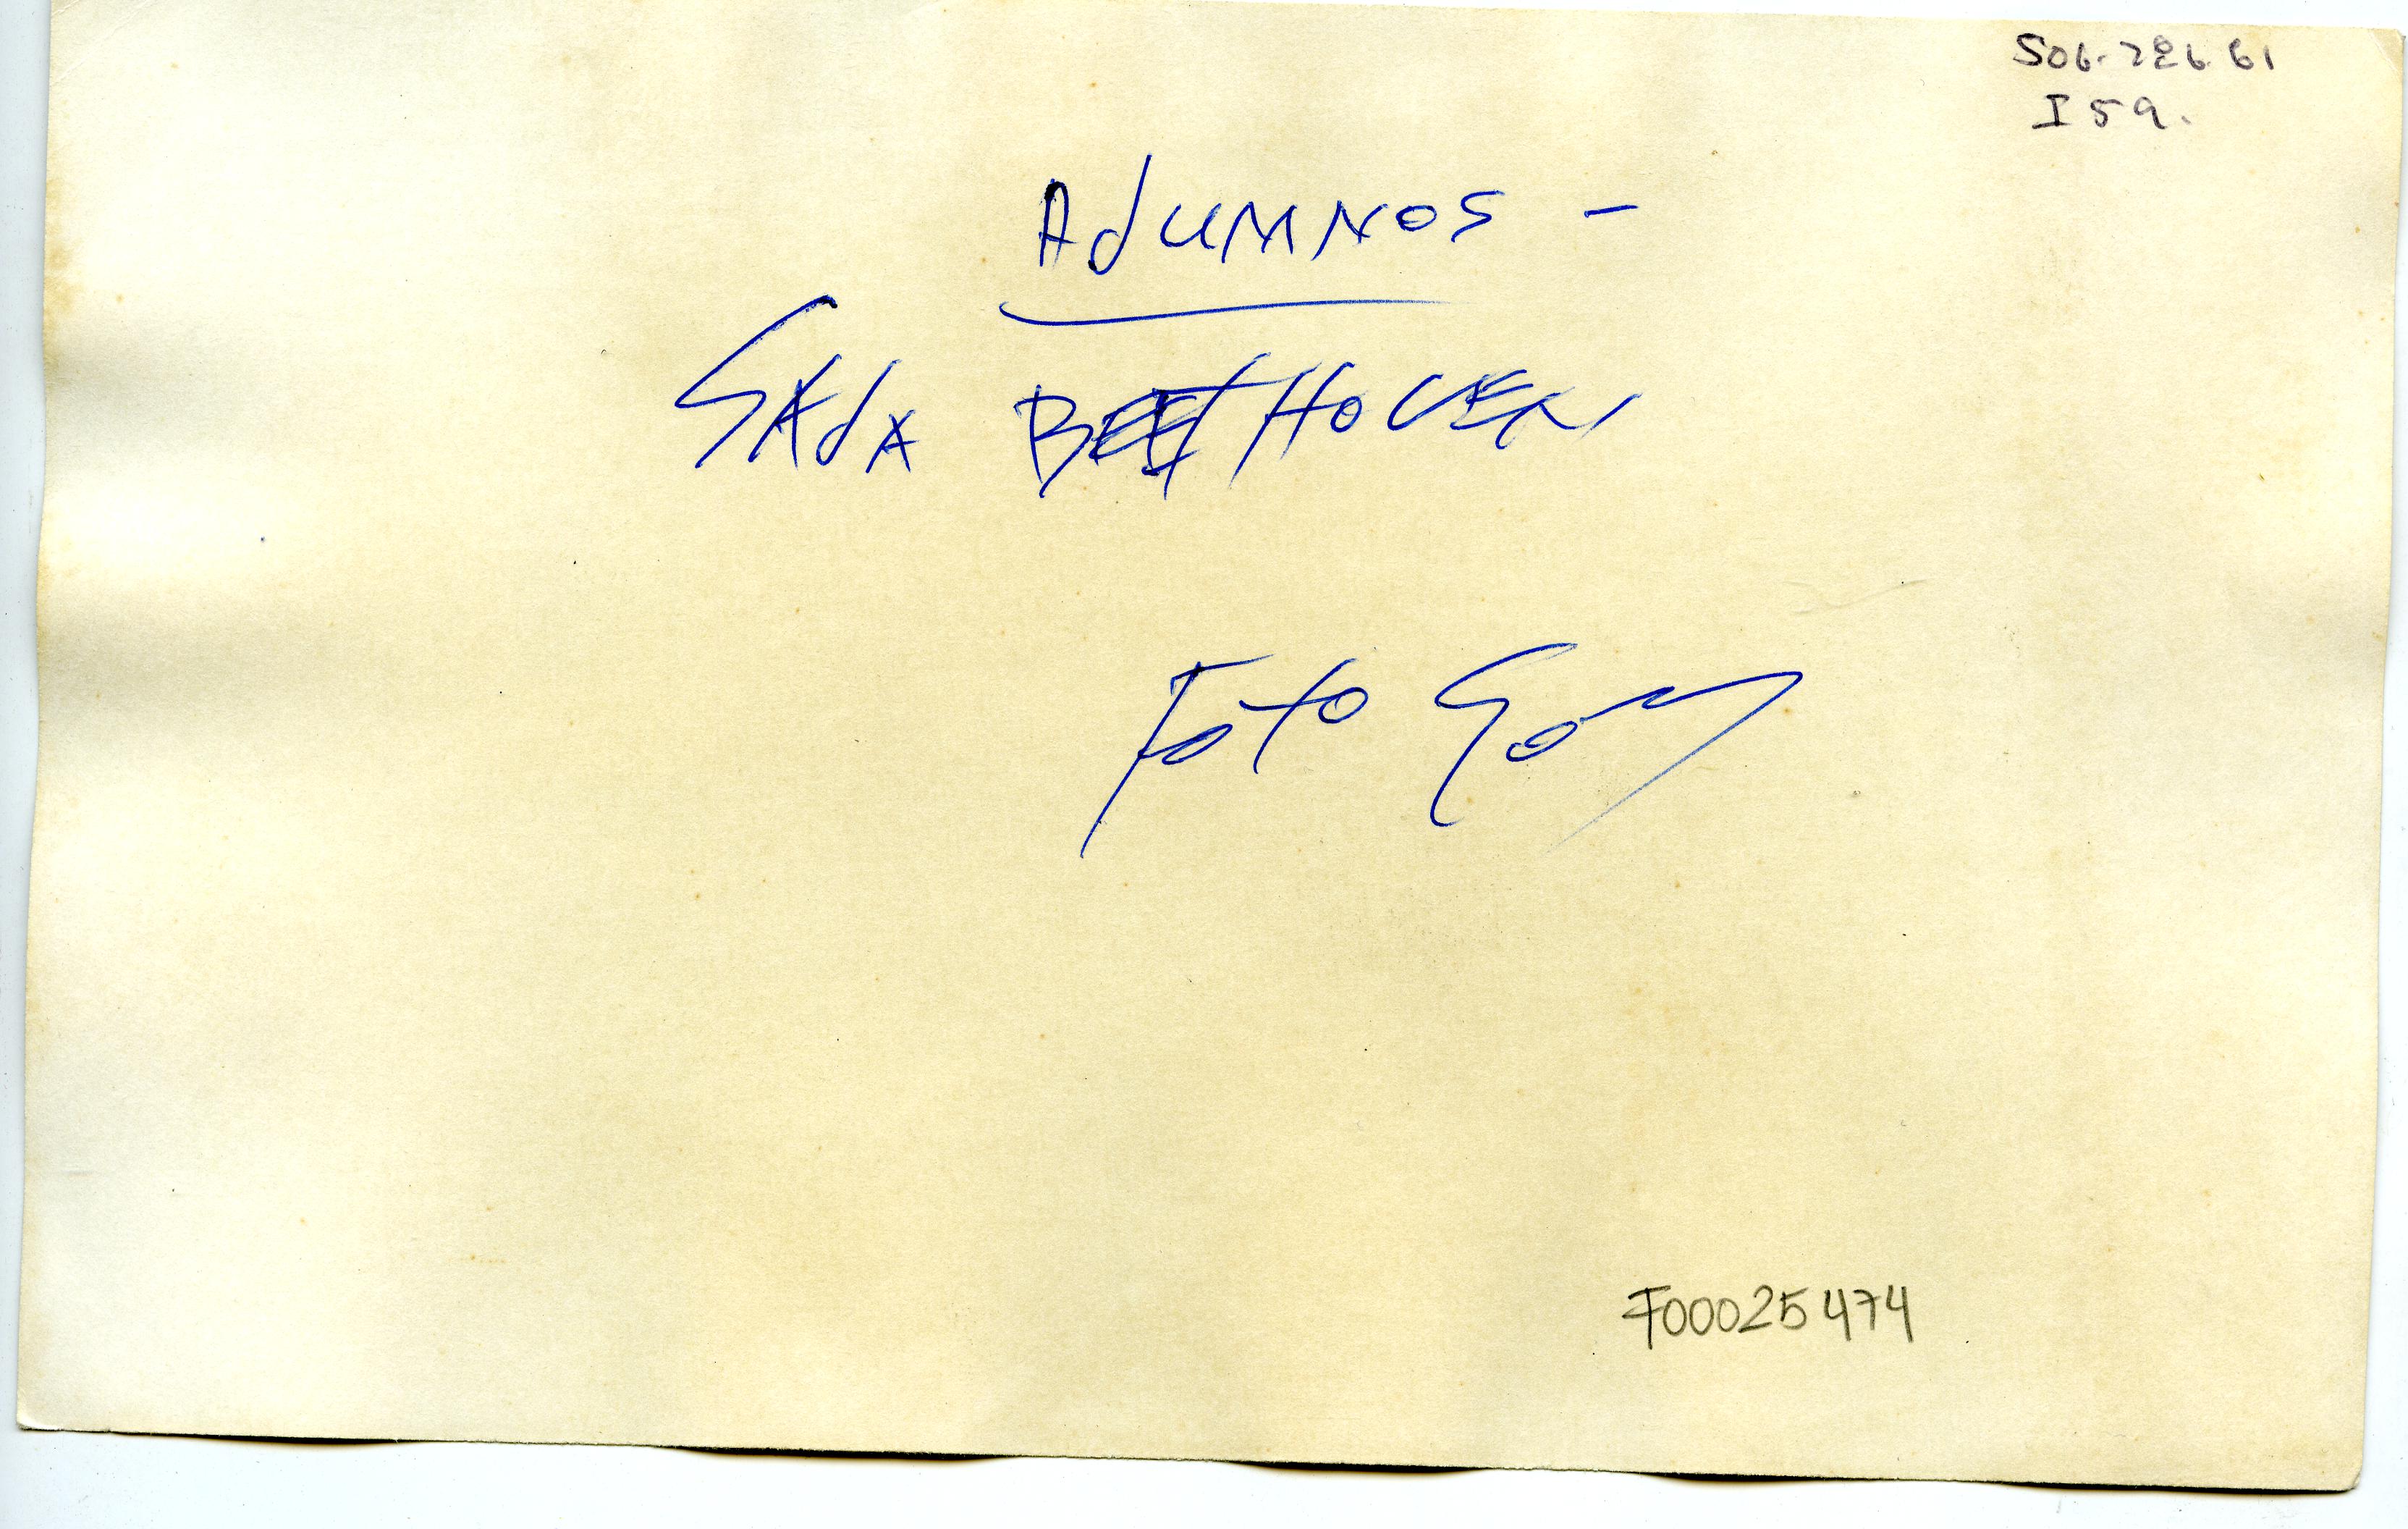 506.786.61
I59.
Alumnos -
Sala BEETHOVEN
Foto
F00025474